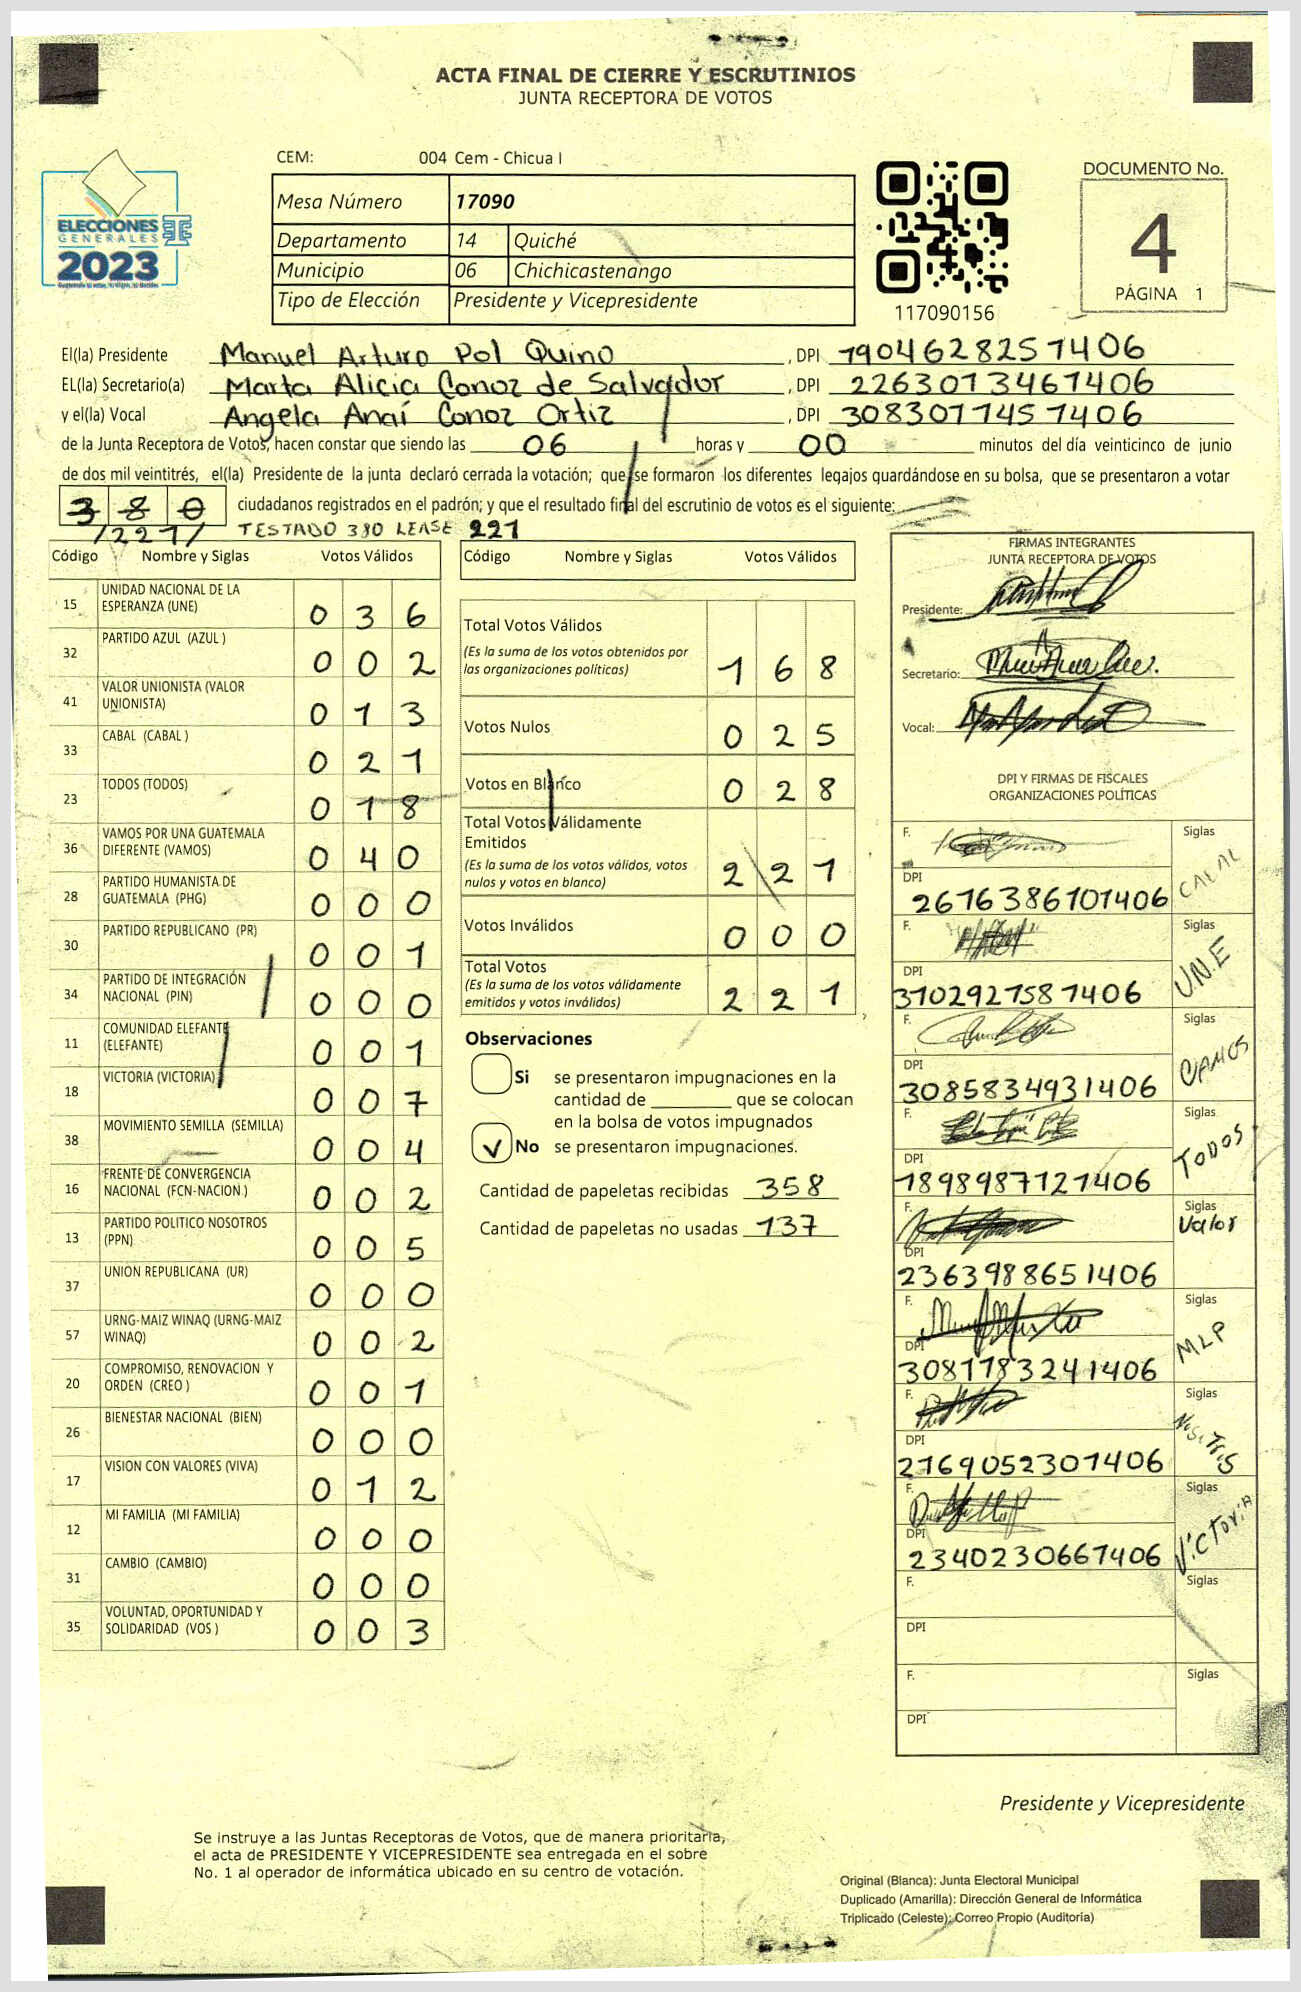 ACTA FINAL DE CIERRE Y ESCRUTINIOS
JUNTA RECEPTORA DE VOTOS
CEM: 004 Cem - Chicua I
ELECCIONES
GENERALES
2023
Mesa Número 17090
Departamento 14 Quiché
Municipio 06 Chichicastenango
Tipo de Elección Presidente y Vicepresidente
117090156
DOCUMENTO No.
4
PÁGINA 1
El(la) Presidente Manuel Arturo Pol Quino , DPI 1904628251406
EL(la) Secretario(a) Marta Alicia Conoz de Salvador , DPI 2263013461406
y el(la) Vocal Angela Anaí Conoz Ortiz , DPI 3083011451406
de la Junta Receptora de Votos, hacen constar que siendo las 06 horas y 00 minutos del día veinticinco de junio
de dos mil veintitrés, el(la) Presidente de la junta declaró cerrada la votación; que se formaron los diferentes legajos guardándose en su bolsa, que se presentaron a votar
3 8 0 ciudadanos registrados en el padrón; y que el resultado final del escrutinio de votos es el siguiente:
/221/ TESTADO 380 LEASE 221
Código Nombre y Siglas Votos Válidos
15 UNIDAD NACIONAL DE LA ESPERANZA (UNE) 0 3 6
32 PARTIDO AZUL (AZUL ) 0 0 2
41 VALOR UNIONISTA (VALOR UNIONISTA) 0 1 3
33 CABAL (CABAL ) 0 2 1
23 TODOS (TODOS) 0 1 8
36 VAMOS POR UNA GUATEMALA DIFERENTE (VAMOS) 0 4 0
28 PARTIDO HUMANISTA DE GUATEMALA (PHG) 0 0 0
30 PARTIDO REPUBLICANO (PR) 0 0 1
34 PARTIDO DE INTEGRACIÓN NACIONAL (PIN) 0 0 0
11 COMUNIDAD ELEFANTE (ELEFANTE) 0 0 1
18 VICTORIA (VICTORIA) 0 0 7
38 MOVIMIENTO SEMILLA (SEMILLA) 0 0 4
16 FRENTE DE CONVERGENCIA NACIONAL (FCN-NACION ) 0 0 2
13 PARTIDO POLITICO NOSOTROS (PPN) 0 0 5
37 UNION REPUBLICANA (UR) 0 0 0
57 URNG-MAIZ WINAQ (URNG-MAIZ WINAQ) 0 0 2
20 COMPROMISO, RENOVACION Y ORDEN (CREO ) 0 0 1
26 BIENESTAR NACIONAL (BIEN) 0 0 0
17 VISION CON VALORES (VIVA) 0 1 2
12 MI FAMILIA (MI FAMILIA) 0 0 0
31 CAMBIO (CAMBIO) 0 0 0
35 VOLUNTAD, OPORTUNIDAD Y SOLIDARIDAD (VOS ) 0 0 3
Código Nombre y Siglas Votos Válidos
Total Votos Válidos
(Es la suma de los votos obtenidos por
las organizaciones políticas) 1 6 8
Votos Nulos 0 2 5
Votos en Blanco 0 2 8
Total Votos Válidamente
Emitidos
(Es la suma de los votos válidos, votos
nulos y votos en blanco) 2 2 1
Votos Inválidos 0 0 0
Total Votos
(Es la suma de los votos válidamente
emitidos y votos inválidos) 2 2 1
Observaciones
Si se presentaron impugnaciones en la
cantidad de ________ que se colocan
en la bolsa de votos impugnados
No se presentaron impugnaciones.
Cantidad de papeletas recibidas 358
Cantidad de papeletas no usadas 137
FIRMAS INTEGRANTES
JUNTA RECEPTORA DE VOTOS
Presidente:
Secretario:
Vocal:
DPI Y FIRMAS DE FISCALES
ORGANIZACIONES POLÍTICAS
F. Siglas
DPI
2616386101406
F. Siglas UNE
DPI
3102921581406
F. Siglas VAMOS
DPI
3085834931406
F. Siglas TODOS
DPI
1898987121406
F. Siglas Valor
DPI
2363988651406
F. Siglas MLP
DPI
3081183241406
F. Siglas
DPI
2169052301406
F. Siglas VICTORIA
DPI
2340230661406
F. Siglas
DPI
F. Siglas
DPI
Presidente y Vicepresidente
Se instruye a las Juntas Receptoras de Votos, que de manera prioritaria,
el acta de PRESIDENTE Y VICEPRESIDENTE sea entregada en el sobre
No. 1 al operador de informática ubicado en su centro de votación.
Original (Blanca): Junta Electoral Municipal
Duplicado (Amarilla): Dirección General de Informática
Triplicado (Celeste): Correo Propio (Auditoría)